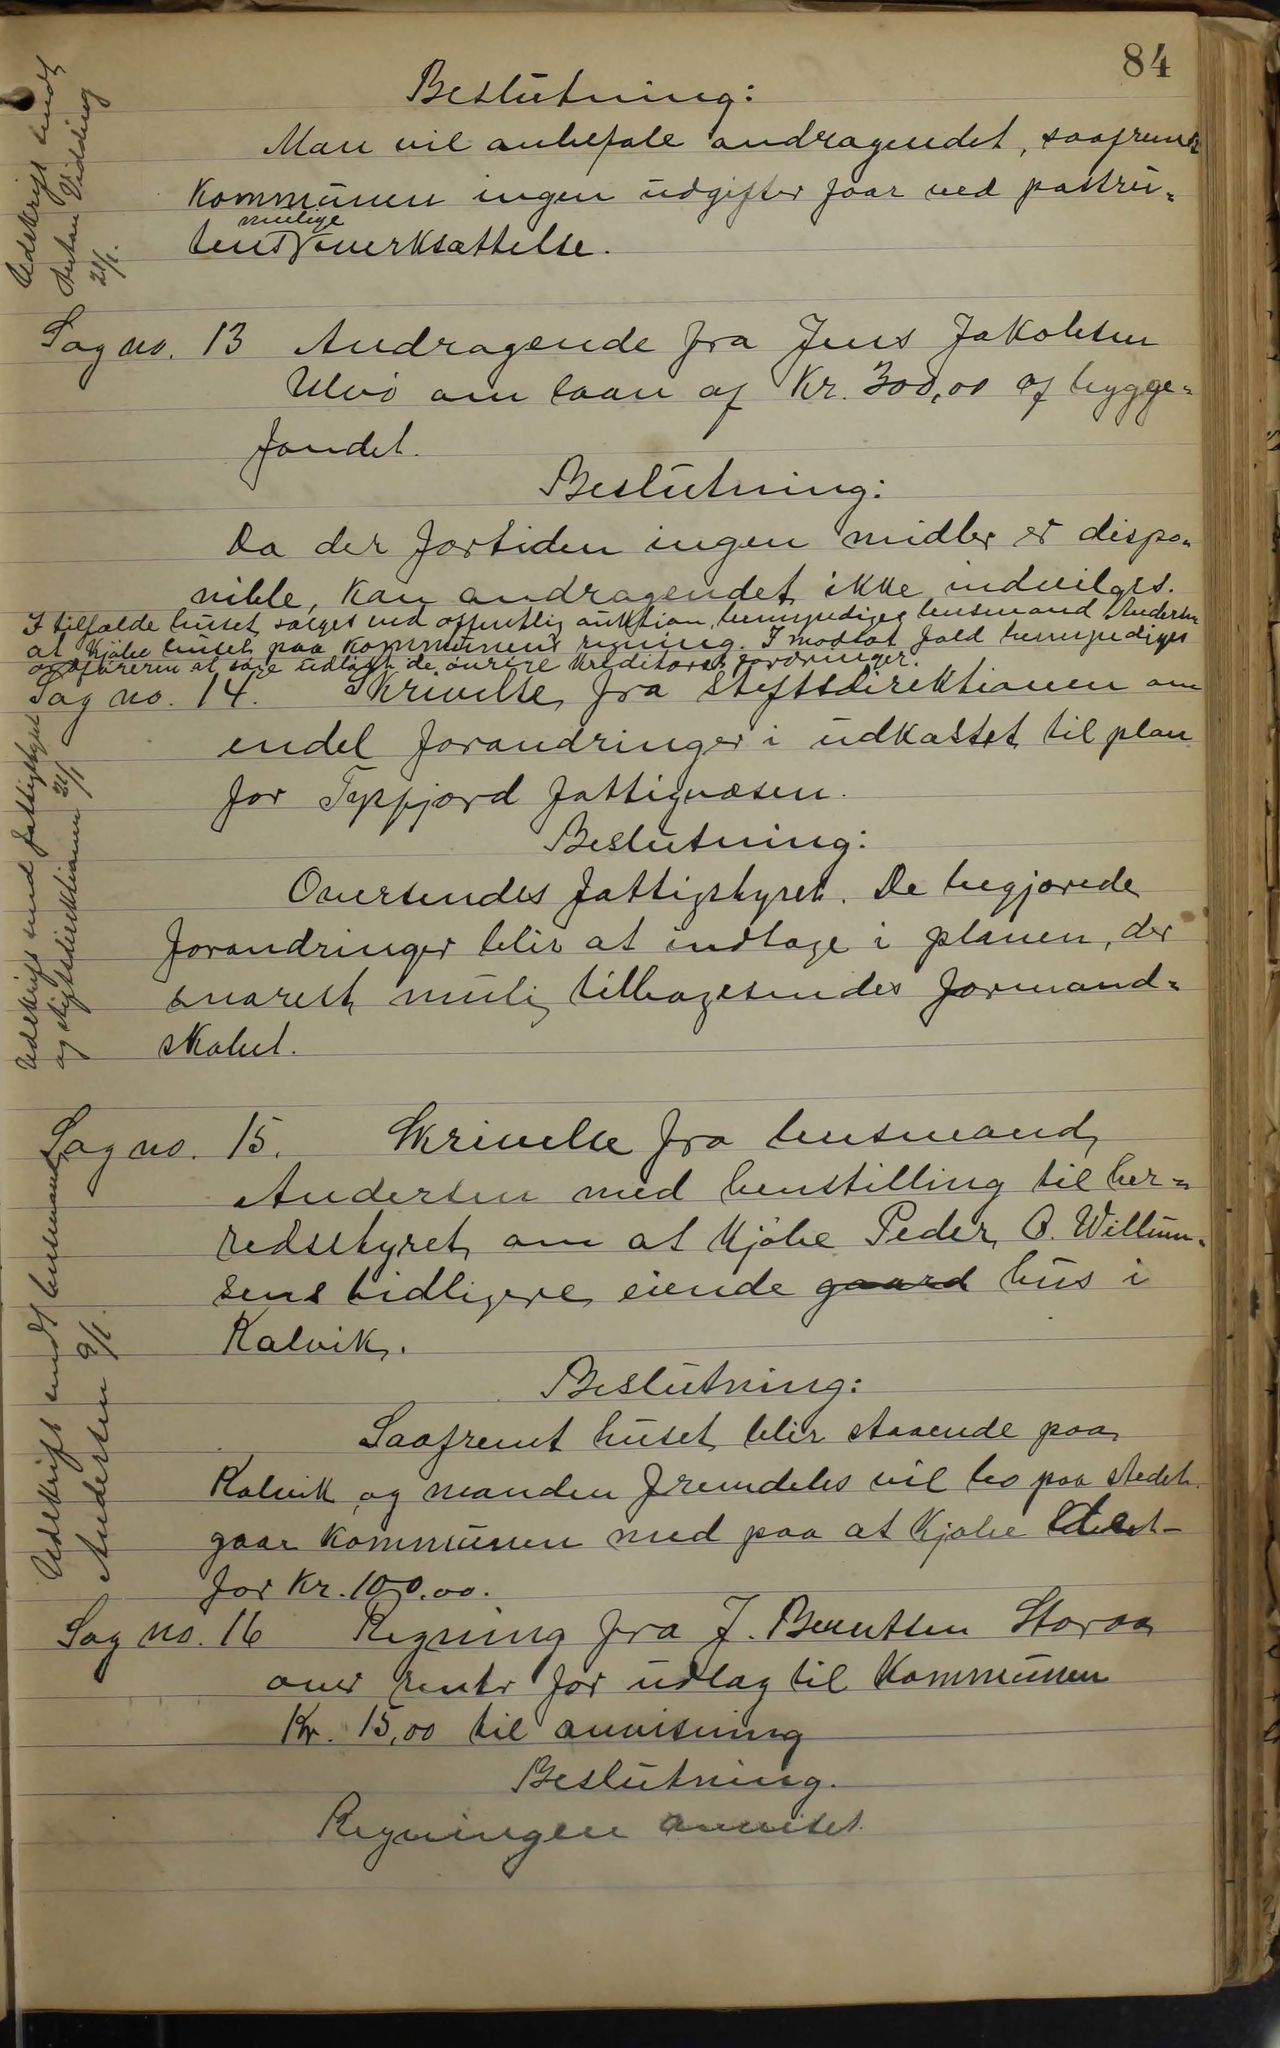 84
Beslutning:
Man vil anbefale andragendet, saafremt
kommunen ingen udgifter faar ved postru-
tens mulige iverksættelse.
Udskrift sendt
Anton Vidding
21/1.
Sag no. 13 Andragende fra Jens Jakobsen
Ulvö om laan af Kr. 300,00 af bygge-
fondet.
Beslutning:
Da der fortiden ingen midler er dispo-
nible, kan andragendet ikke indvilges.
I tilfælde huset sælges ved offentlig auktion, bemyndiges lensmand Andersen
at kjöbe huset paa kommunens regning. I modsat fald bemyndiges
ordföreren at söge udlöst de övrige kreditorers fordringer.
Sag no. 14. Skrivelse fra stiftsdirektionen om
endel forandringer i udkastet til plan
for Tysfjord fattigvæsen.
Beslutning:
Oversendes fattigstyret. De begjærede
forandringer blir at indtage i planen, der
snarest mulig tilbagesendes formand-
skabet.
Udskrift send fattigstyret
og stiftsdirektionen 21/1
Sag no. 15. Skrivelse fra lensmand
Andersen med henstilling til her-
redsstyret om at kjöbe Peder O. Willum-
sens tidligere eiende gaard hus i
Kalvik.
Beslutning:
Saafremt huset blir staaende paa
Kalvik og manden fremdeles vil bo paa stedet
gaar kommunen med paa at kjöbe det
for Kr. 100.00.
Udskrift sendt lensmand
Andersen 9/1.
Sag no. 16 Regning fra J. Berntsen Storaa
over renter for udlæg til kommunen
Kr. 15,00 til anvisning
Beslutning.
Regningen anvises.